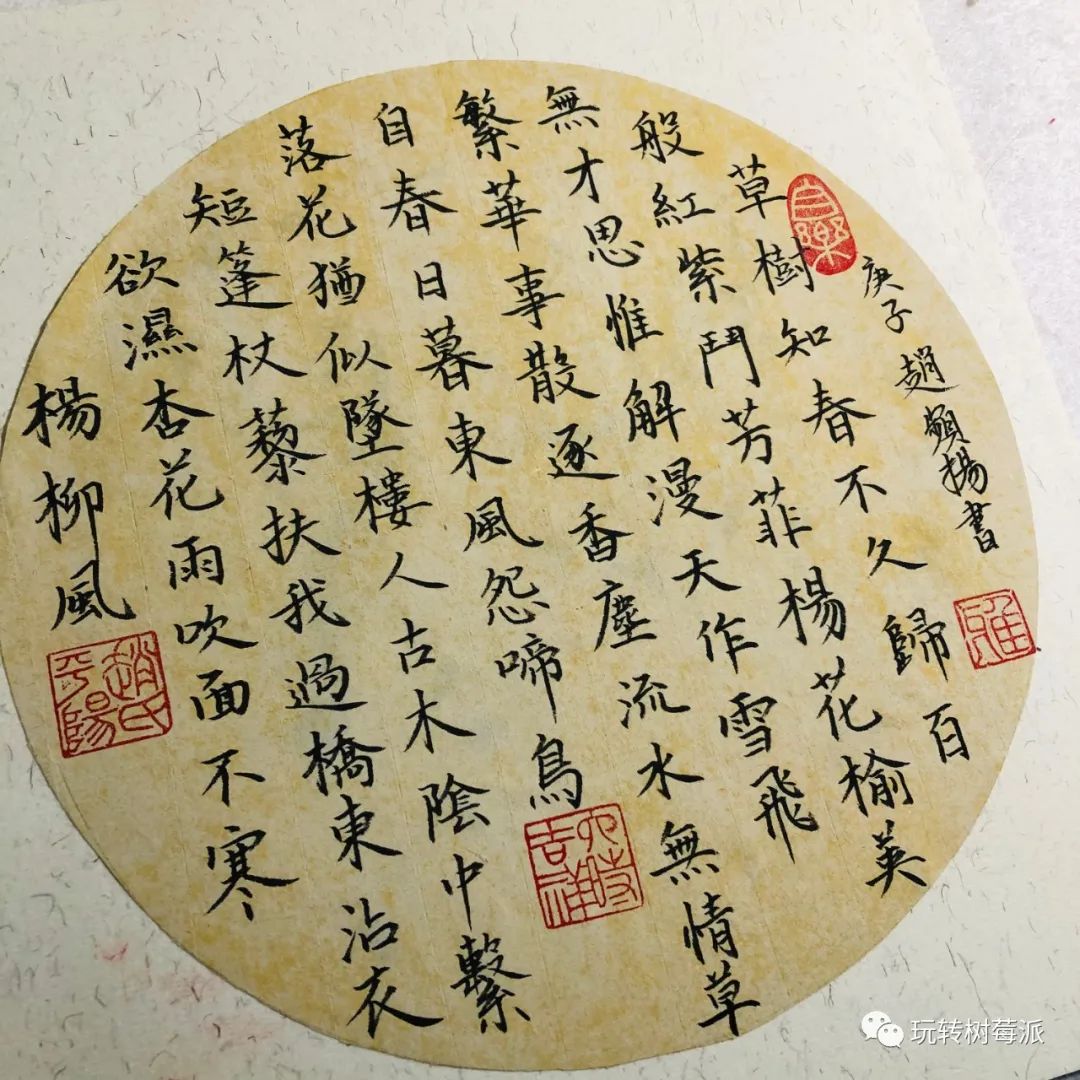 庚子趙揚書
草樹知春不久歸百
般紅紫鬥芳菲楊花榆英
無才思惟解漫天作雪飛
繁華事散逐香塵流水無情草
自春日暮東風怨啼鳥
落花猶似墜樓人古木陰中繫
短篷杖藜扶我過橋東沾衣
欲濕杏花雨吹面不寒
楊柳風
自樂
雅
六時吉祥
趙氏平陽
玩转树莓派